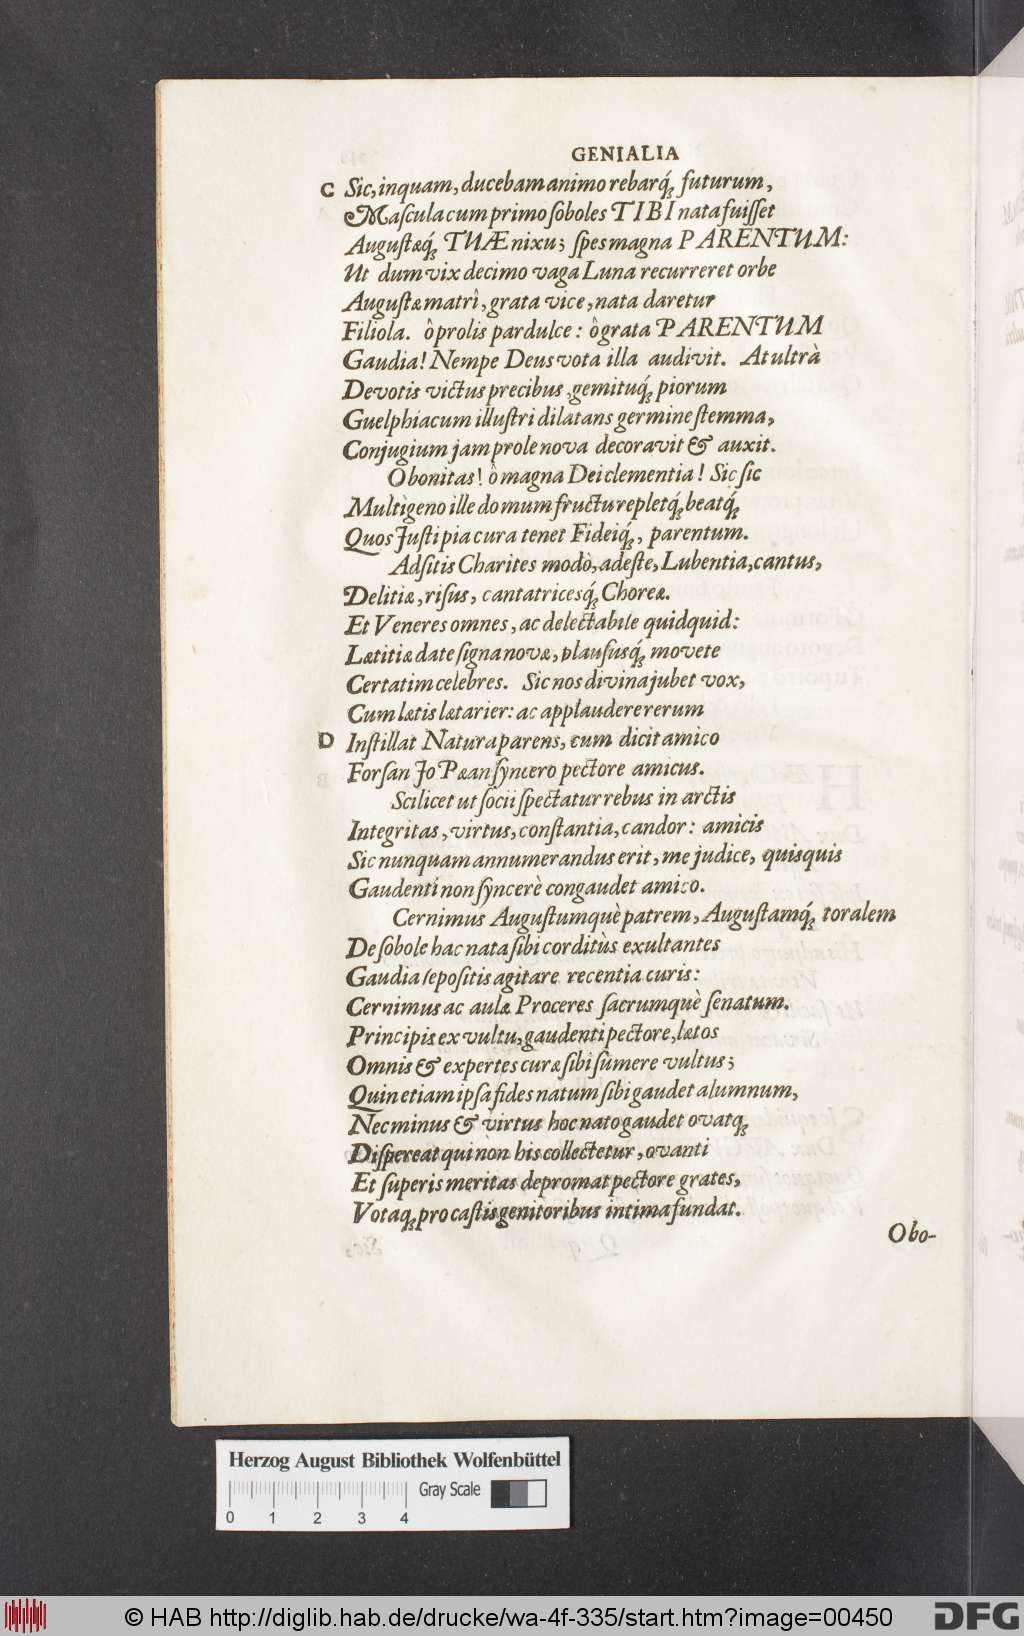 GENIALIA
C Sic, inquam, ducebam animo rebarq́; futurum,
Mascula cum primo soboles TIBI nata fuisset
Augustæq́; TUÆ nixu; spes magna PARENTUM:
Ut dum vix decimo vaga Luna recurreret orbe
Augustæ matri, grata vice, nata daretur
Filiola. ô prolis par dulce: ô grata PARENTUM
Gaudia! Nempe Deus vota illa audivit. At ultrà
Devotis victus precibus, gemituq́; piorum
Guelphiacum illustri dilatans germine stemma,
Conjugium jam prole nova decoravit & auxit.
O bonitas! ô magna Dei clementia! Sic sic
Multigeno ille domum fructu repletq́; beatq́;
Quos Justi pia cura tenet Fideiq́;, parentum.
Adsitis Charites modò, adeste, Lubentia, cantus,
Delitiæ, risus, cantatricesq́; Choreæ.
Et Veneres omnes, ac delectabile quidquid:
Lætitiæ date signa novæ, plaususq́; movete
Certatim celebres. Sic nos divina jubet vox,
Cum lætis lætarier: ac applaudere rerum
D Instillat Natura parens, cum dicit amico
Forsan Jo Pæan syncero pectore amicus.
Scilicet ut socii spectatur rebus in arctis
Integritas, virtus, constantia, candor: amicis
Sic nunquam annumerandus erit, me judice, quisquis
Gaudenti non syncerè congaudet amico.
Cernimus Augustumquè patrem, Augustamq́; toralem
De sobole hac nata sibi corditùs exultantes
Gaudia sepositis agitare recentia curis:
Cernimus ac aulæ Proceres sacrumquè senatum.
Principis ex vultu, gaudenti pectore, lætos
Omnis & expertes curæ sibi sumere vultus;
Quin etiam ipsa fides natum sibi gaudet alumnum,
Nec minus & virtus hoc nato gaudet ovatq;
Dispereat qui non his collectetur, ovanti
Et superis meritas depromat pectore grates,
Votaq; pro castis genitoribus intima fundat.
O bo-
Herzog August Bibliothek Wolfenbüttel
Gray Scale
0 1 2 3 4
© HAB http://diglib.hab.de/drucke/wa-4f-335/start.htm?image=00450
DFG